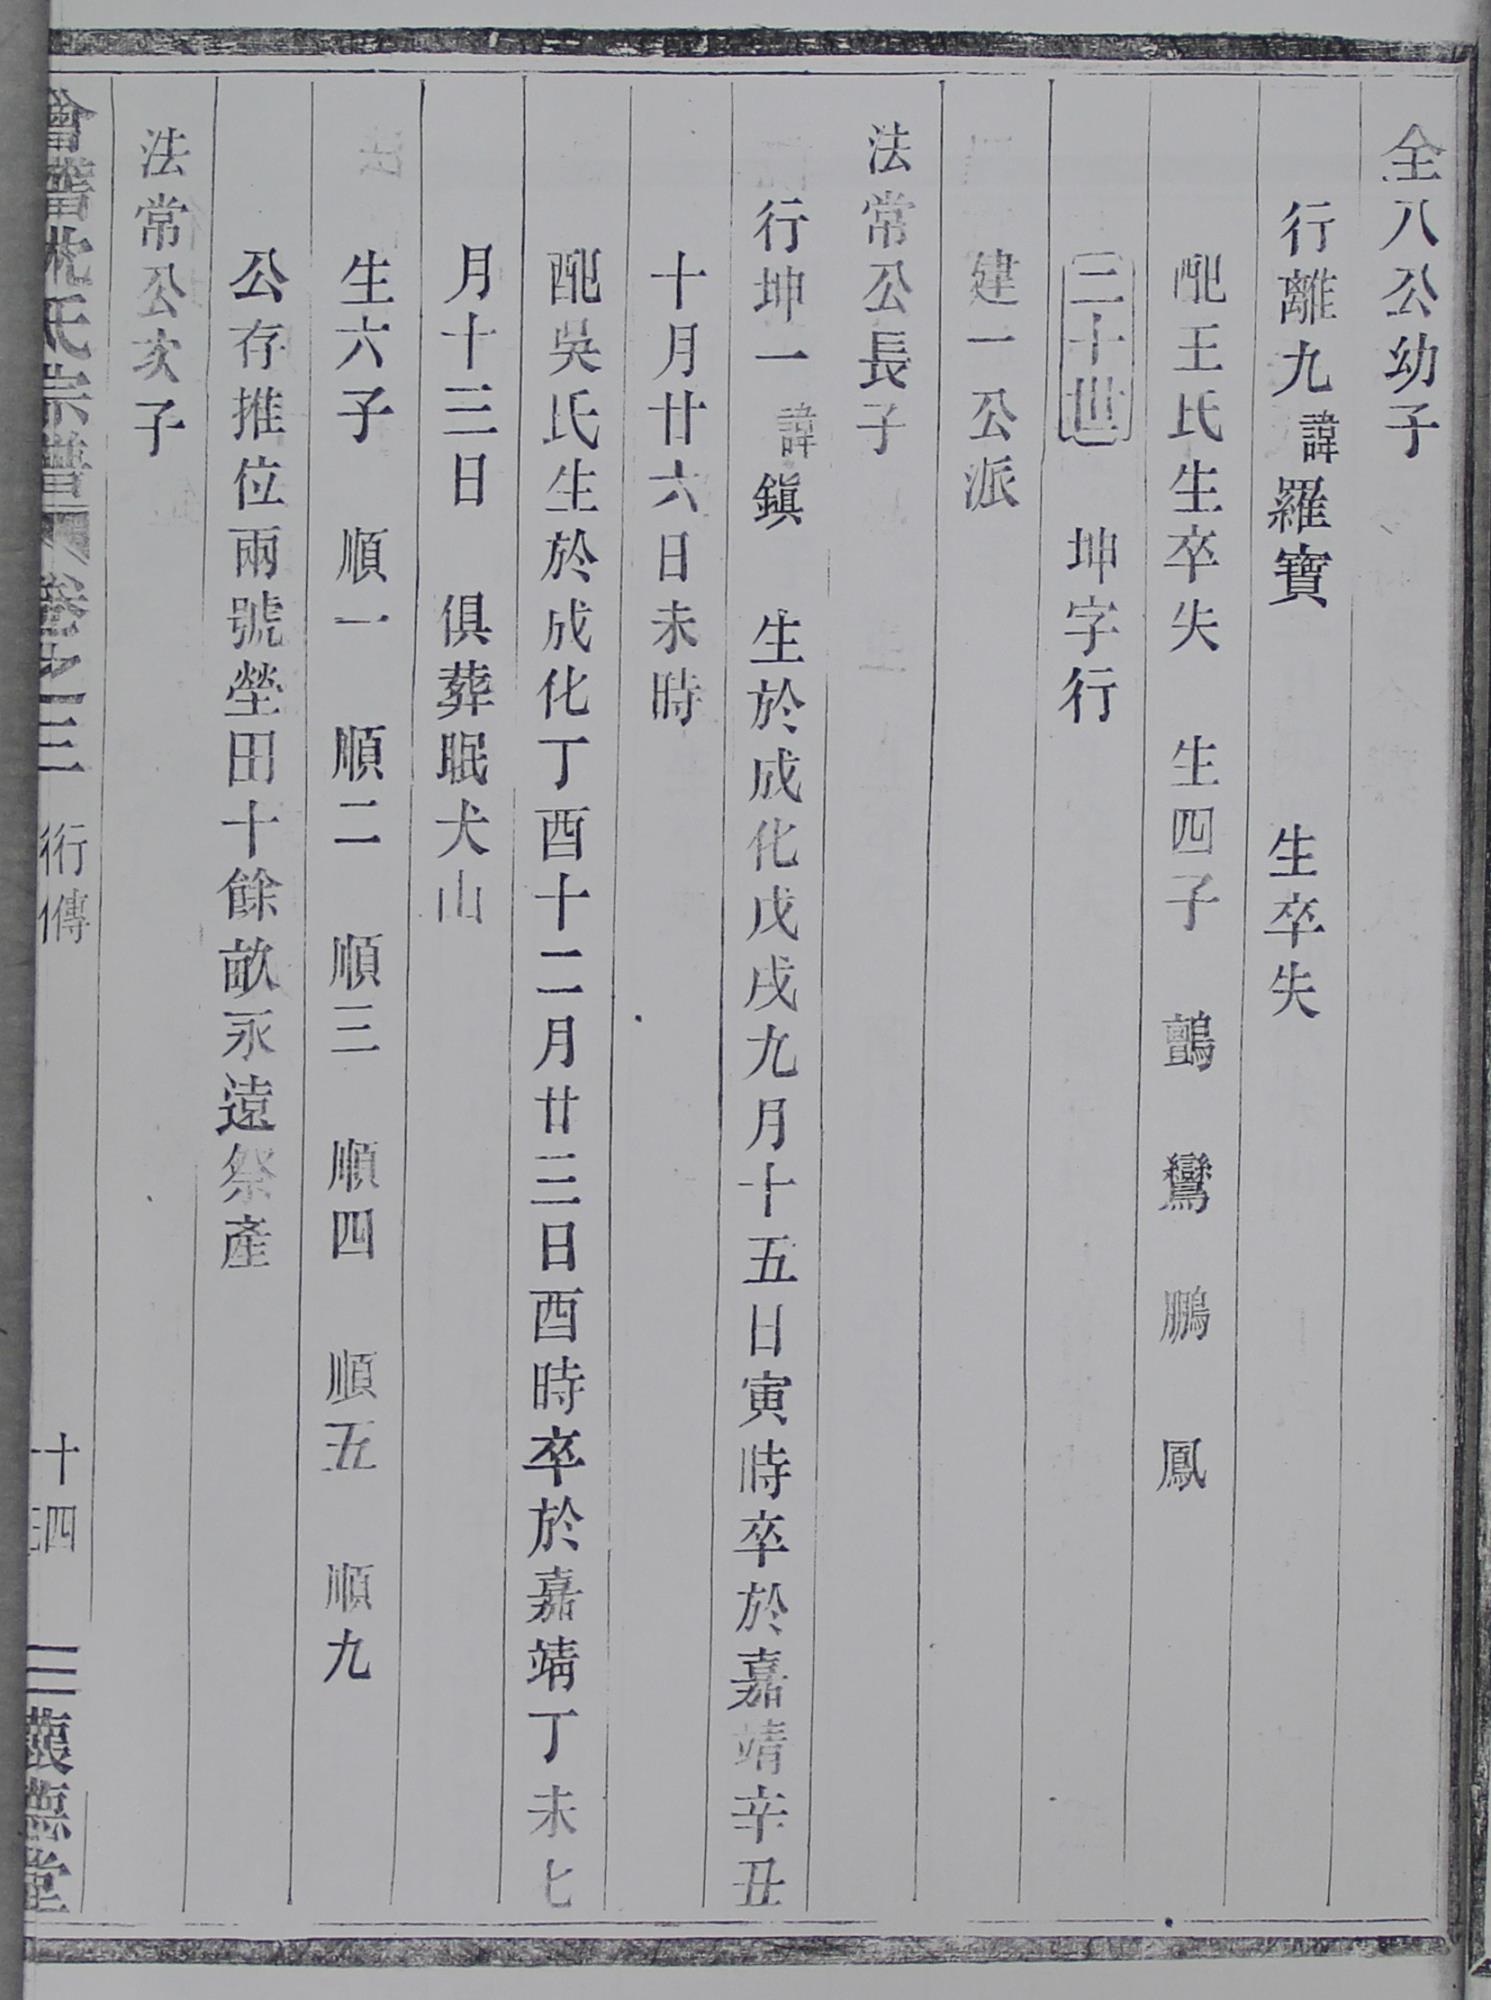 全八公幼子
行離九諱羅寶　生卒失
配王氏生卒失　生四子　鷓　鸞　鵬　鳳
二十世　坤字行
建一公派
法常公長子
行坤一諱鎮　生於成化戊戌九月十五日寅時卒於嘉靖辛丑
十月廿六日未時
配吳氏生於成化丁酉十二月廿三日酉時卒於嘉靖丁未七
月十三日　俱葬眠犬山
生六子　順一　順二　順三　順四　順五　順九
公存推位兩號塋田十餘畝永遠祭產
法常公次子
會稽沈氏宗譜　卷之三　行傳　十四　懷德堂